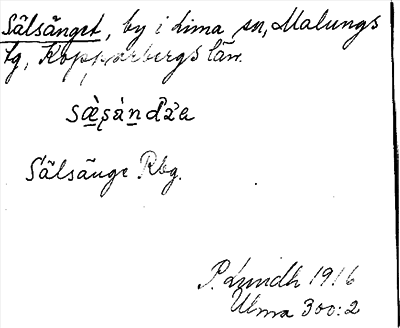 Sälsänget, by i Lima sn, Malungs
tg, Kopparbergs län.
Sälsänge Rbg.
P. Lundh 1916
Ulma 300:2